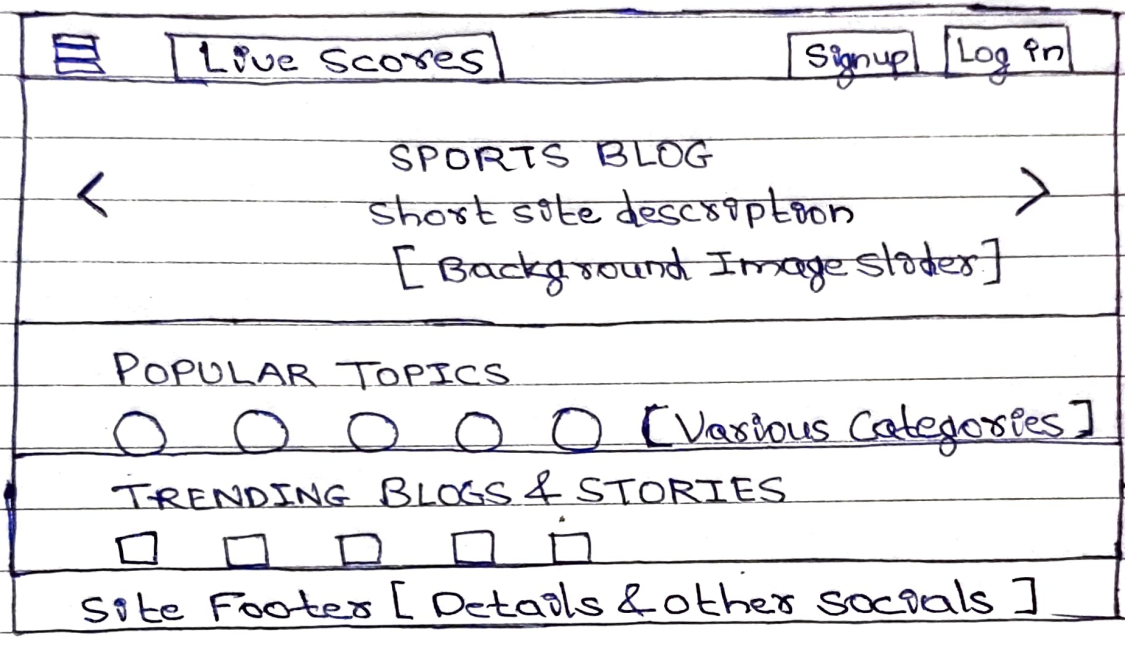 Live Scores Signup Log in
SPORTS BLOG
Short site description
[ Background Image slider ]
POPULAR TOPICS
[Various Categories]
TRENDING BLOGS & STORIES
Site Footer [ Details & other socials ]